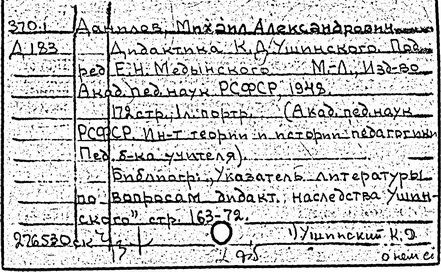 370.1 Данилов, Михаил Александрович.
Д 183 Дидактика К.Д. Ушинского. Под
ред. Е.Н. Медынского. М-Л., Изд-во
Акад. пед. наук РСФСР, 1948.
172 стр., 1 л. портр. (Акад. пед. наук
РСФСР. Ин-т теории и истории педагогики
Пед. б-ка учителя).
Библиогр: "Указатель литературы
по вопросам дидакт. наследства Ушин-
ского" стр. 163-72.
276530 1) Ушинский К.Д.
о нем